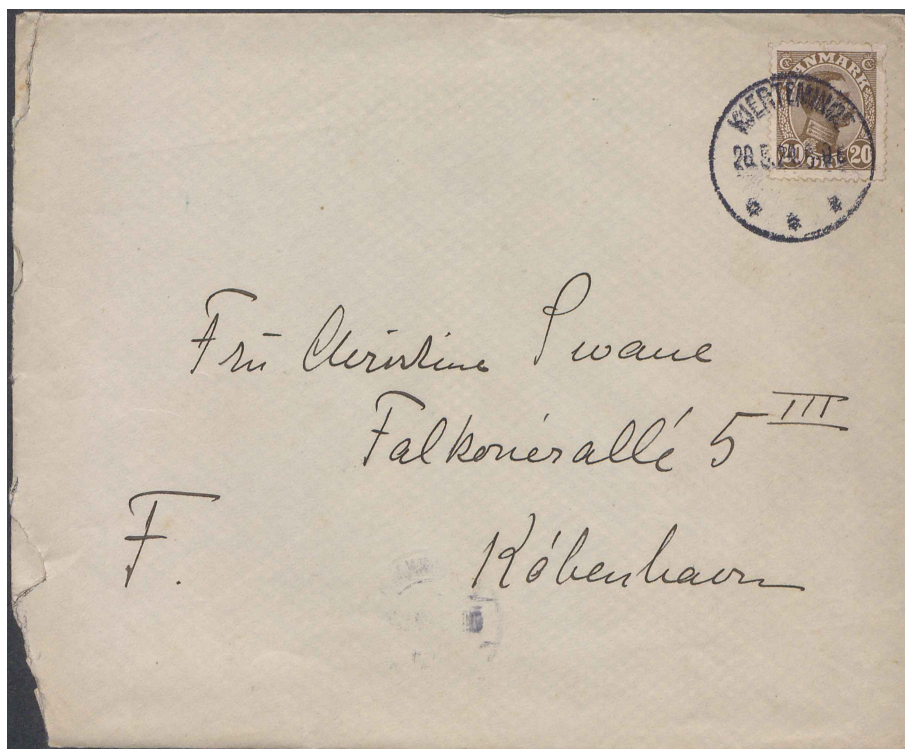 DANMARK
20 20
KJERTEMINDE
Frú Christine Swane
Falkonérallé 5 III
F. København